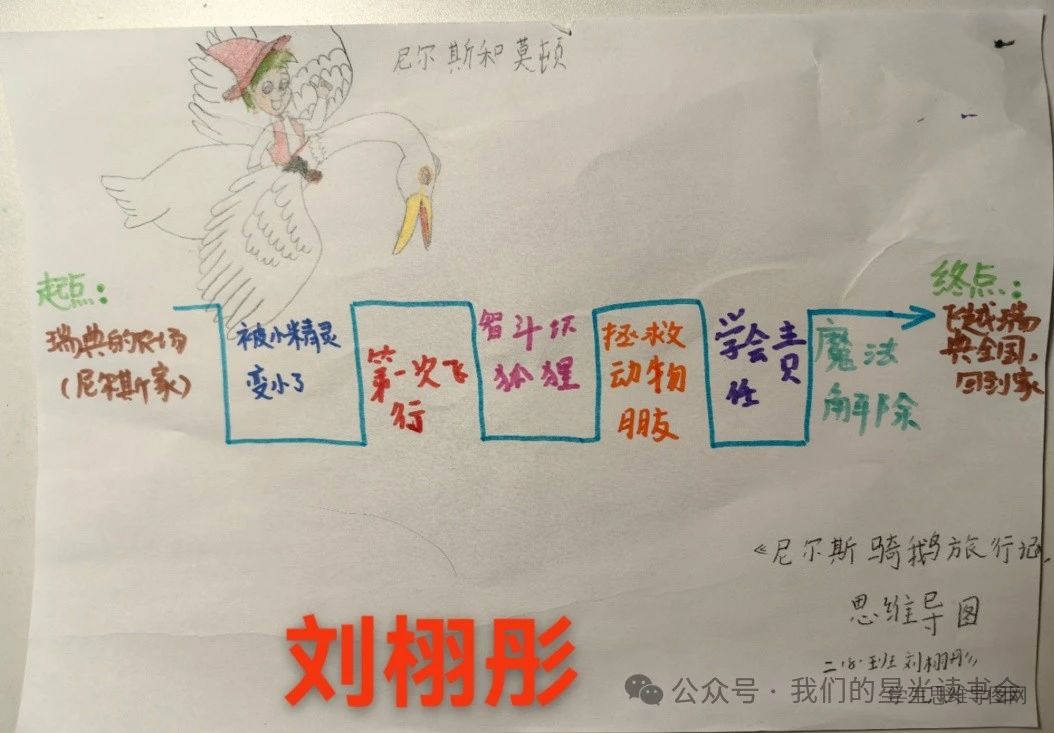 尼尔斯和莫顿
起点：
瑞典的农场
（尼尔斯家）
被小精灵
变小了
第一次飞
行
智斗坏
狐狸
拯救
动物
朋友
学会责
任
魔法
解除
终点：
飞越瑞
典全国，
回到家
《尼尔斯骑鹅旅行记》
思维导图
二（8）班 刘栩彤
刘栩彤
公众号·我们的星光读书会
学生思维导图网